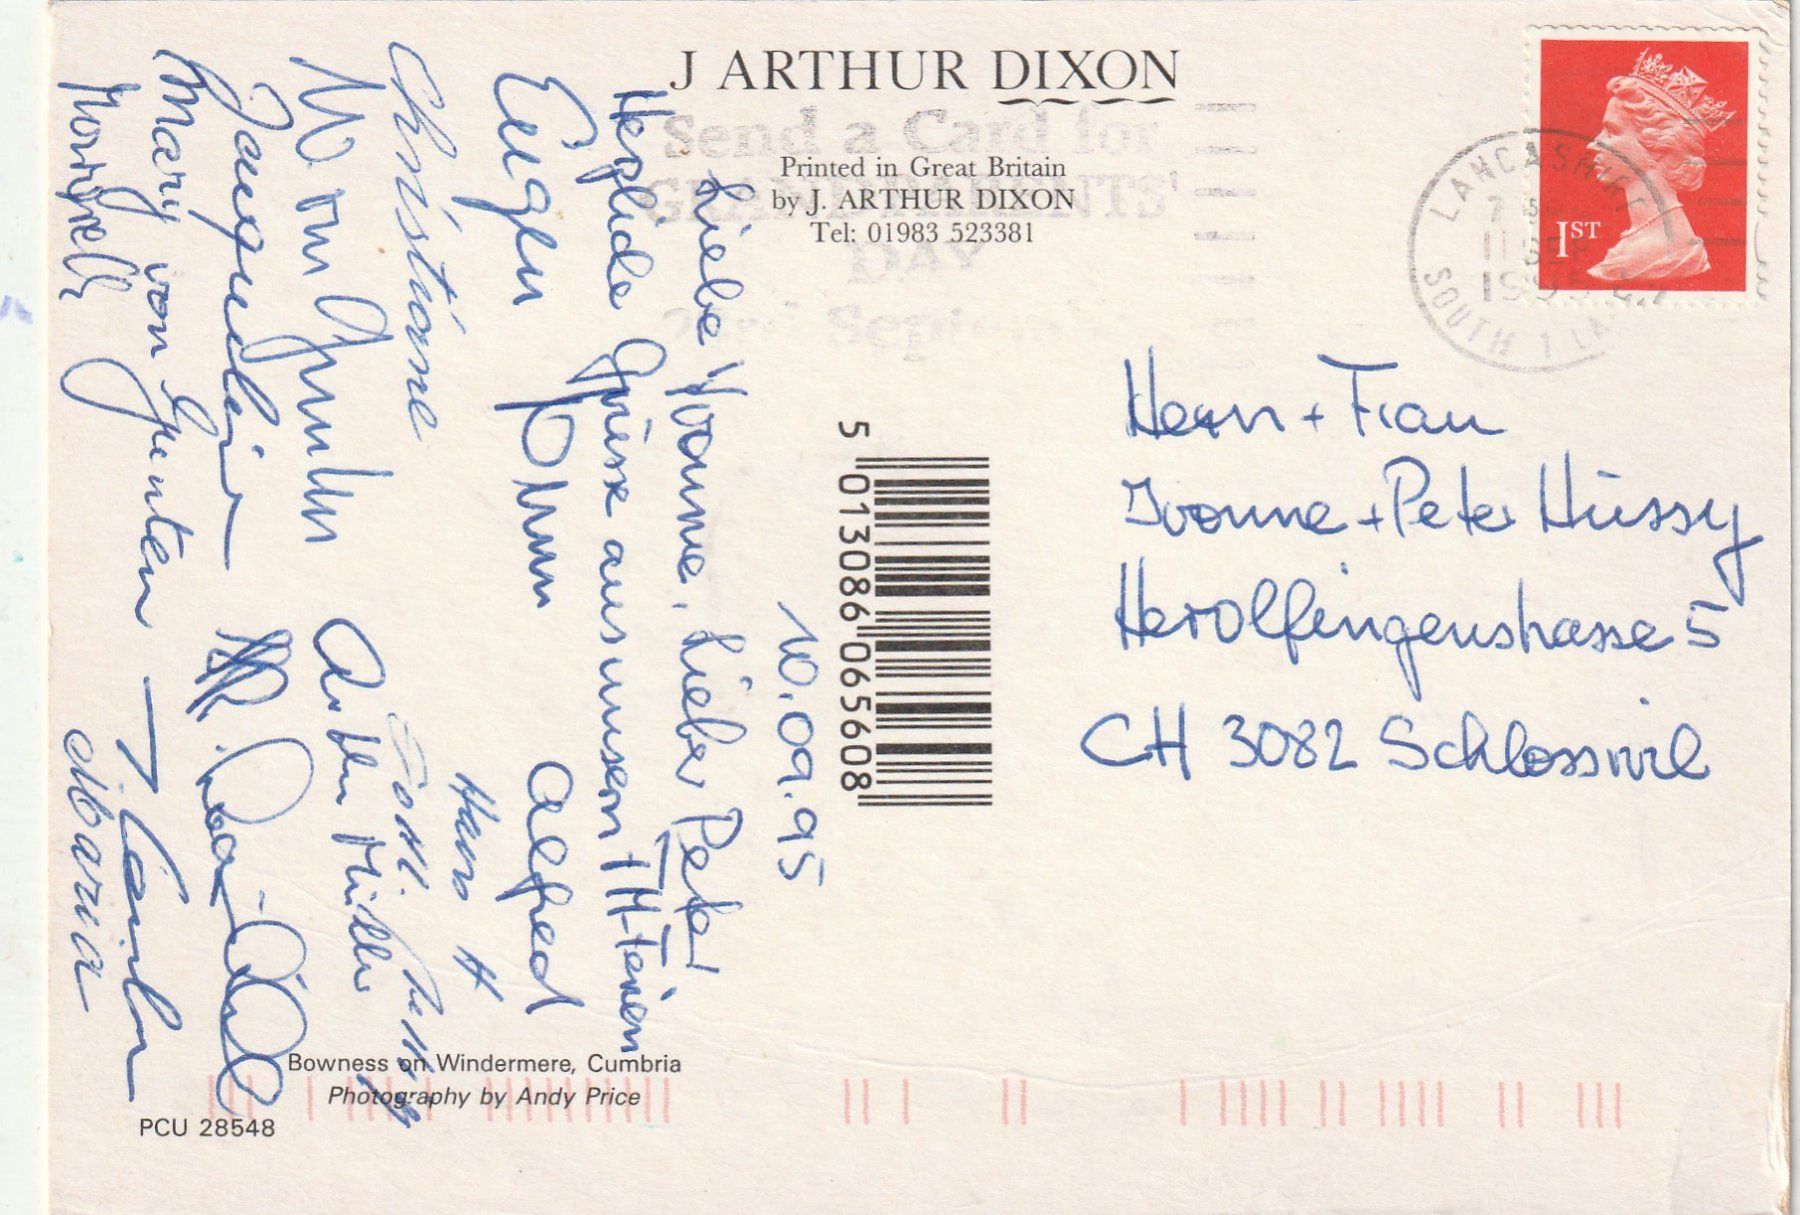 J ARTHUR DIXON
Send a Card for
GRANDPARENTS'
DAY
Printed in Great Britain
by J. ARTHUR DIXON
Tel: 01983 523381
1ST
LANCASHIRE
SOUTH 1 LA
11 SEP
1995
10.09.95
Liebe Yvonne, Lieber Peter
Herzliche Grüsse aus unseren
Eugen
Alfred
Christiane
Hans H
W von Gunten
Arthur Müller
Jaqueline
Mary von Gunten
Maria
Herrn + Frau
Ivonne + Peter Hüssy
Herolfingenstrasse 5
CH 3082 Schlosswil
5 013086 065608
Bowness on Windermere, Cumbria
Photography by Andy Price
PCU 28548